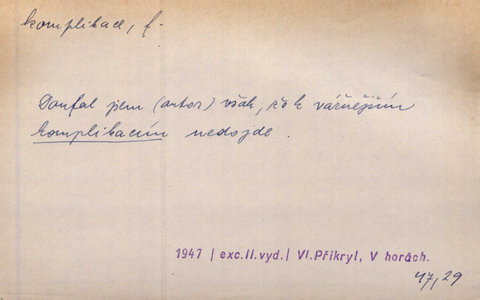 komplikace, f.
Doufal jsem (autor) však, že k vážnějším
komplikacím nedojde.
1947 | exc.II.vyd.| Vl.Přikryl, V horách.
47,29